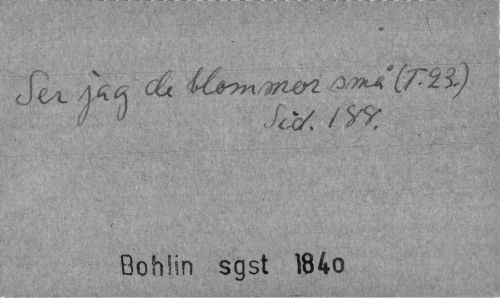 Ser jag de blommor små (T. 23.)
Sid. 188.
Bohlin sgst 1840